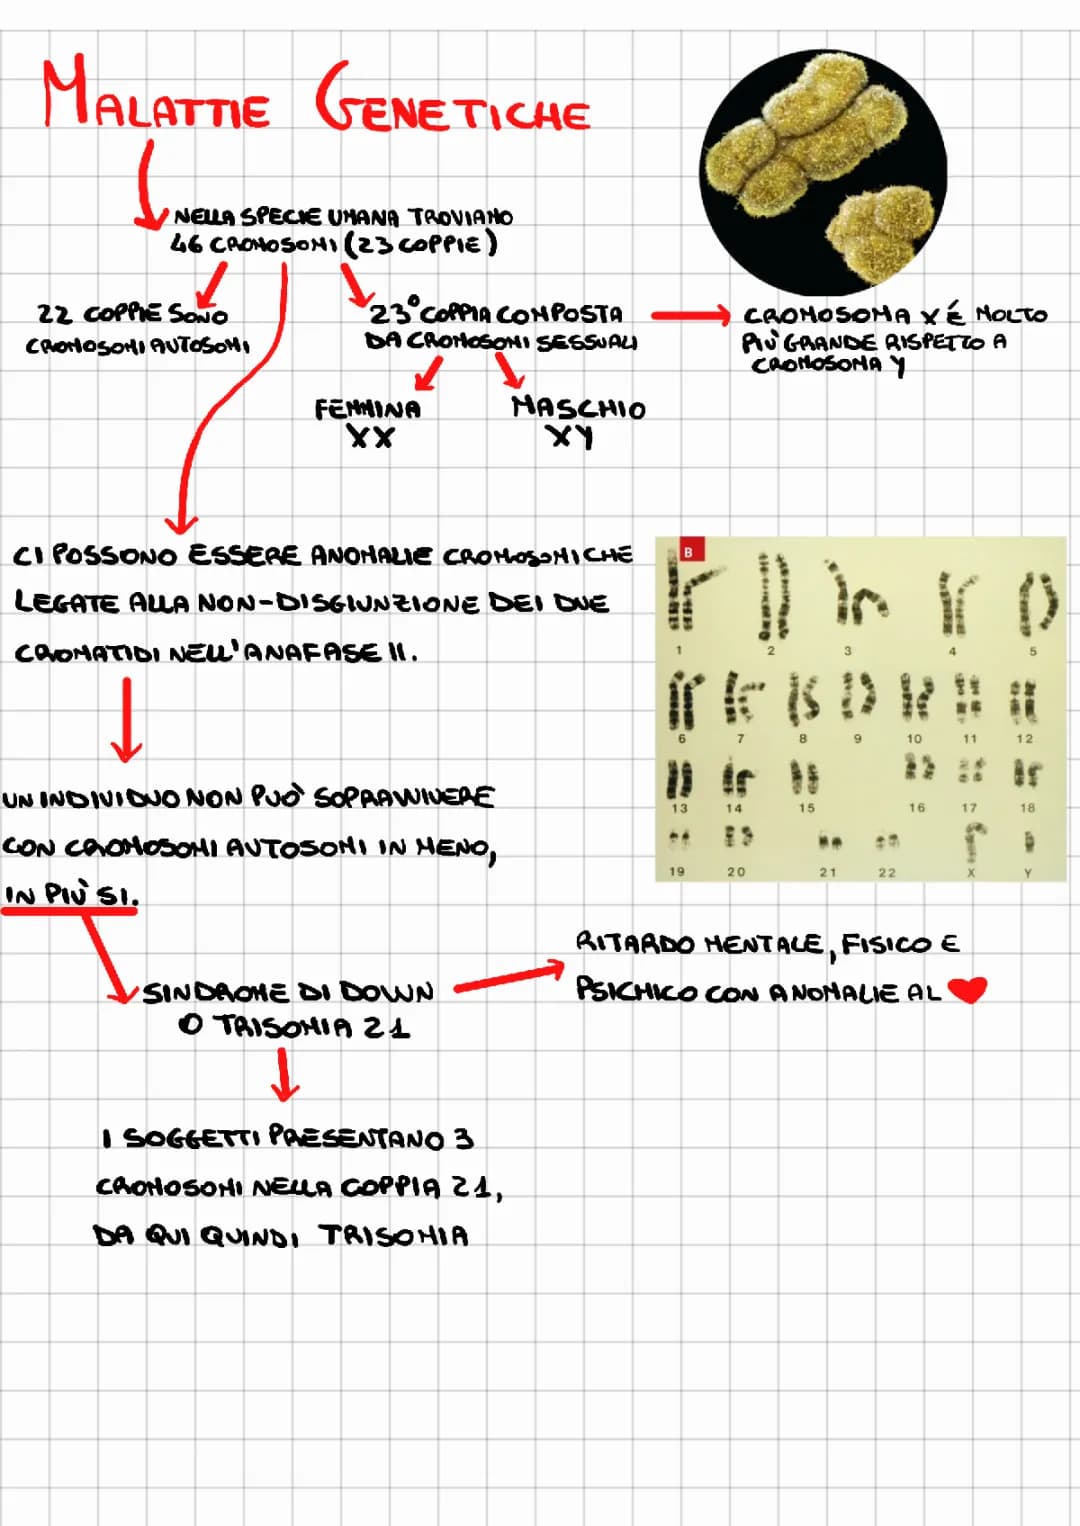 MALATTIE GENETICHE
NELLA SPECIE UMANA TROVIAMO
46 CROMOSOMI (23 COPPIE)
22 COPPIE SONO
CROMOSOMI AUTOSOMI
23° COPPIA COMPOSTA
DA CROMOSOMI SESSUALI
CROMOSOMA X É MOLTO
PIÙ GRANDE RISPETTO A
CROMOSOMA Y
FEMMINA
XX
MASCHIO
XY
CI POSSONO ESSERE ANOMALIE CROMOSOMICHE
LEGATE ALLA NON-DISGIUNZIONE DEI DUE
CROMATIDI NELL'ANAFASE II.
B
1 2 3 4 5
6 7 8 9 10 11 12
13 14 15 16 17 18
19 20 21 22 X Y
UN INDIVIDUO NON PUÒ SOPRAVVIVERE
CON CROMOSOMI AUTOSOMI IN MENO,
IN PIÙ SI.
SINDROME DI DOWN
O TRISOMIA 21
RITARDO MENTALE, FISICO E
PSICHICO CON ANOMALIE AL
I SOGGETTI PRESENTANO 3
CROMOSOMI NELLA COPPIA 21,
DA QUI QUINDI TRISOMIA